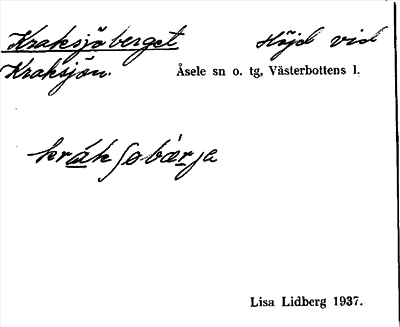 Kraksjöberget Höjd vid
Kraksjön. Åsele sn o. tg, Västerbottens l.
krákʃøbærja
Lisa Lidberg 1937.